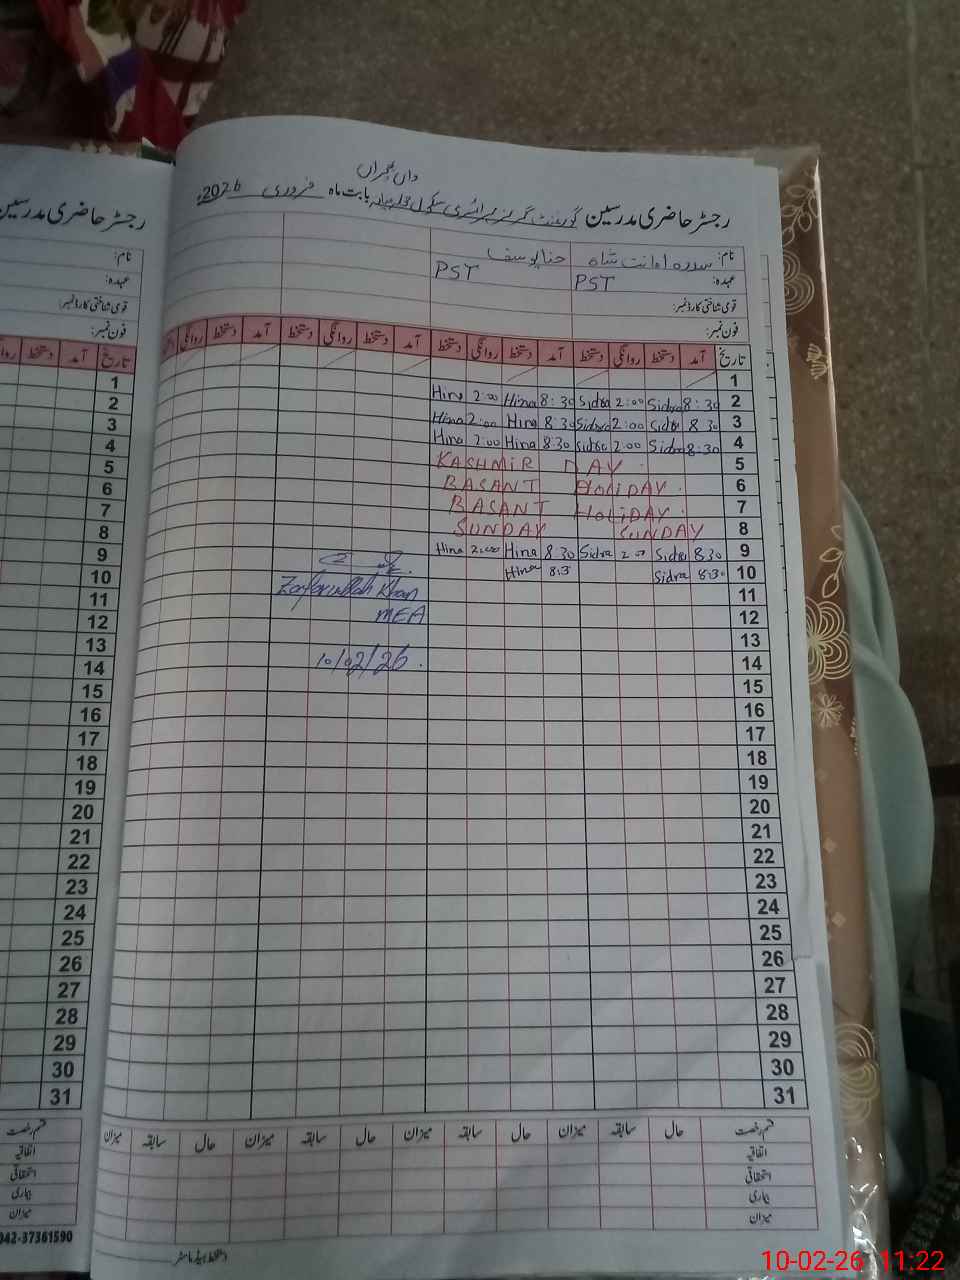 واں بھچراں
رجسٹر حاضری مدرسین گورنمنٹ گرلز پرائمری سکول بابت ماہ فروری 2026ء
نام: سدرہ امانت شاہ حنا یوسف
عہدہ: PST PST
قومی شناختی کارڈ نمبر:
فون نمبر:
تاریخ آمد دستخط روانگی دستخط آمد دستخط روانگی دستخط آمد دستخط روانگی دستخط آمد دستخط روانگی
1
2 8:30 Sidra 2:00 Sidra 8:30 Hina 2:00 Hina
3 8:30 Sidra 2:00 Sidra 8:30 Hina 2:00 Hina
4 8:30 Sidra 2:00 Sidra 8:30 Hina 2:00 Hina
5 KASHMIR DAY
6 BASANT HOLIDAY
7 BASANT HOLIDAY
8 SUNDAY SUNDAY
9 8:30 Sidra 2:00 Sidra 8:30 Hina 2:00 Hina
10 8:30 Sidra 8:3 Hina
11
12
13
14
15
16
17
18
19
20
21
22
23
24
25
26
27
28
29
30
31
Zafarullah Khan
MEA
10/02/26
قسم رخصت حال سابقہ میزان حال سابقہ میزان حال سابقہ میزان حال سابقہ میزان
اتفاقیہ
استحقاقی
بیماری
میزان
دستخط ہیڈ ماسٹر
رجسٹر حاضری مدرسین
نام:
عہدہ:
قومی شناختی کارڈ نمبر:
فون نمبر:
تاریخ آمد دستخط
1
2
3
4
5
6
7
8
9
10
11
12
13
14
15
16
17
18
19
20
21
22
23
24
25
26
27
28
29
30
31
قسم رخصت
اتفاقیہ
استحقاقی
بیماری
میزان
042-37361590
10-02-26 11:22